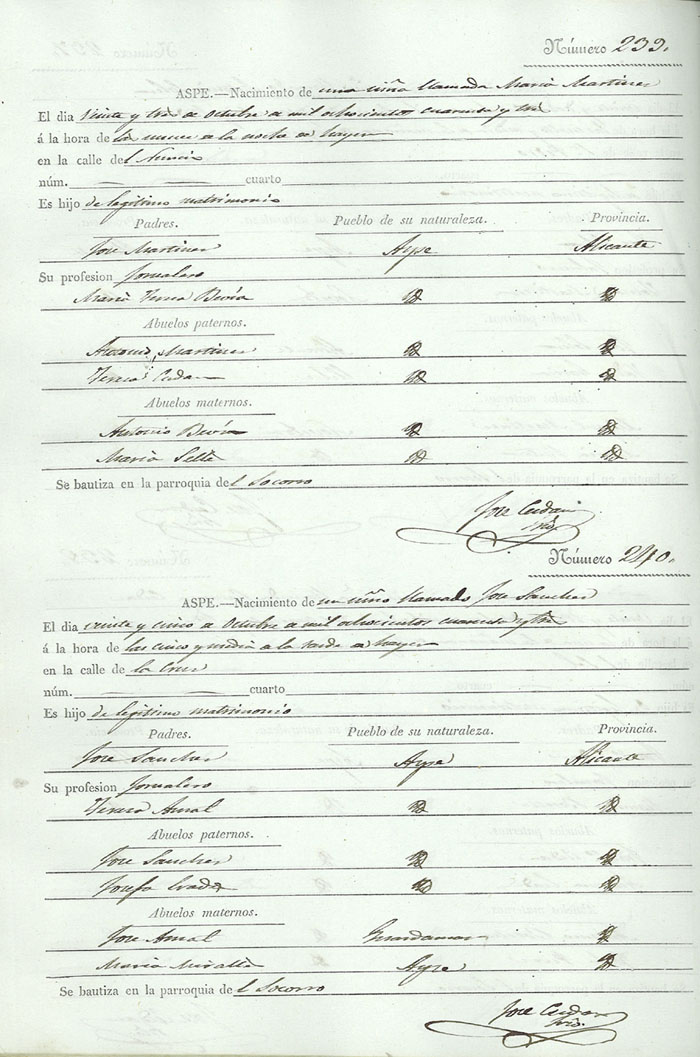 Número 239.
ASPE.—Nacimiento de una niña llamada Maria Martinez
El dia veinte y tres de Octubre de mil ochocientos cuarenta y tres
á la hora de las nueve de la noche de hayer
en la calle del
núm. — — cuarto
Es hijo de legitimo matrimonio
Padres. Pueblo de su naturaleza. Provincia.
Jose Martinez Aspe Alicante
Su profesion Jornalero
Maria Teresa Id Id
Abuelos paternos.
Antonio Martinez Id Id
Teresa Id Id
Abuelos maternos.
Antonio Id Id
Maria Id Id
Se bautiza en la parroquia del Socorro
Jose
Número 240.
ASPE.—Nacimiento de un niño llamado Jose Sanchez
El dia veinte y cinco de Octubre de mil ochocientos cuarenta y tres
á la hora de las cinco y media de la tarde de hayer
en la calle de la Cruz
núm. — — cuarto
Es hijo de legitimo matrimonio
Padres. Pueblo de su naturaleza. Provincia.
Jose Sanchez Aspe Alicante
Su profesion Jornalero
Teresa Id Id
Abuelos paternos.
Jose Sanchez Id Id
Josefa Id Id
Abuelos maternos.
Jose Guardamar Id
Maria Miralles Aspe Id
Se bautiza en la parroquia del Socorro
Jose